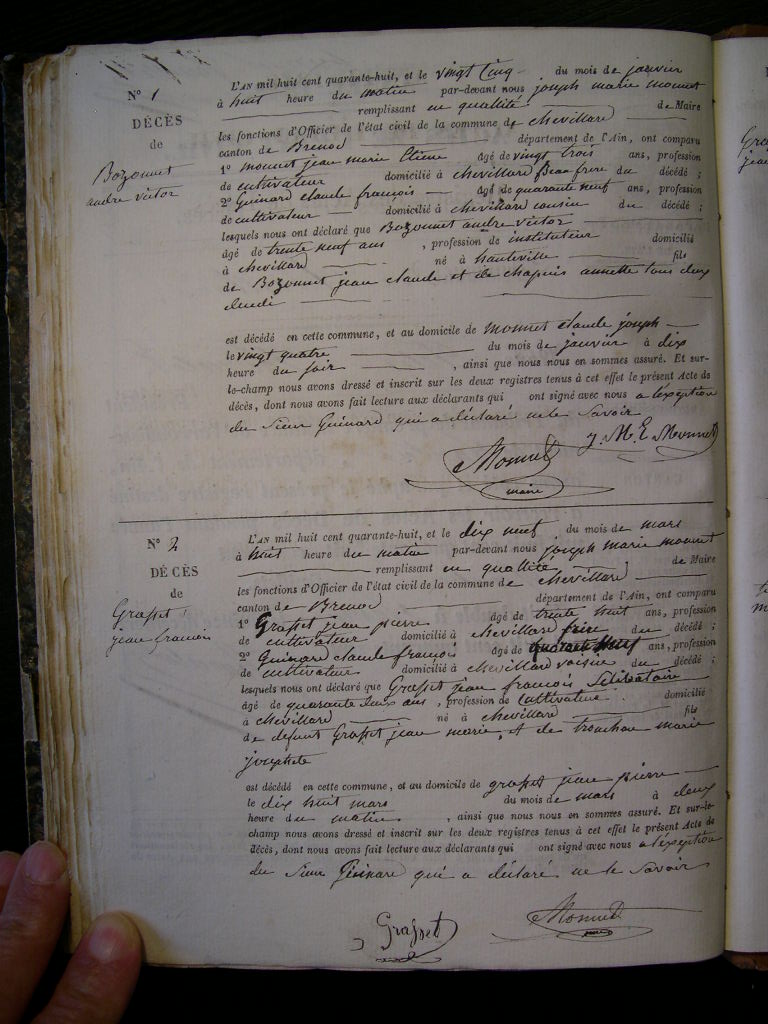 N° 1
DÉCÈS
de
Bozonnet
andre victor
L'AN mil huit cent quarante-huit, et le vingt cinq du mois de janvier
à huit heure du matin par-devant nous joseph marie monnet
remplissant en quallité de Maire
les fonctions d'Officier de l'état civil de la commune de chevillard
canton de Brenod département de l'Ain, ont comparu
1° monnet jean marie Etiene âgé de vingt trois ans, profession
de cultivateur domicilié à chevillard Beau frere du décédé ;
2° Guinard claude françois âgé de quarante neuf ans, profession
de cultivateur domicilié à chevillard cousin du décédé ;
lesquels nous ont déclaré que Bozonnet andre victor
âgé de trente neuf ans , profession de instituteur domicilié
à chevillard né à hauteville fils
de Bozonnet jean claude et de chapuis annette tous deux
est décédé en cette commune, et au domicile de monnet claude joseph
le vingt quatre du mois de janvier à dix
heure du soir , ainsi que nous nous en sommes assuré. Et sur-
le-champ nous avons dressé et inscrit sur les deux registres tenus à cet effet le présent Acte de
décès, dont nous avons fait lecture aux déclarants qui ont signé avec nous a l'éxeption
du sieur Guinard qui a déclaré ne le savoir
J. M. E Monnet
Monnet
maire
N° 2
DÉCÈS
de
Grasset
jean francois
L'AN mil huit cent quarante-huit, et le dix neuf du mois de mars
à huit heure du matin par-devant nous joseph marie monnet
remplissant en quallité de Maire
les fonctions d'Officier de l'état civil de la commune de chevillard
canton de Brenod département de l'Ain, ont comparu
1° Grasset jean pierre âgé de trente huit ans, profession
de cultivateur domicilié à chevillard frère du décédé ;
2° Guinard claude françois âgé de quarante neuf ans, profession
de cultivateur domicilié à chevillard voisin du décédé ;
lesquels nous ont déclaré que Grasset jean françois Selibataire
âgé de quarante deux ans , profession de Cultivateur domicilié
à chevillard né à chevillard fils
de defunt Grasset jean marie, et de marie
josephete
est décédé en cette commune, et au domicile de grasset jean pierre
le dix huit mars du mois de mars à deux
heure du matin , ainsi que nous nous en sommes assuré. Et sur-le-
champ nous avons dressé et inscrit sur les deux registres tenus à cet effet le présent Acte de
décès, dont nous avons fait lecture aux déclarants qui ont signé avec nous a l'éxeption
du sieur Guinard qui a déclaré ne le savoir
Grasset
Monnet